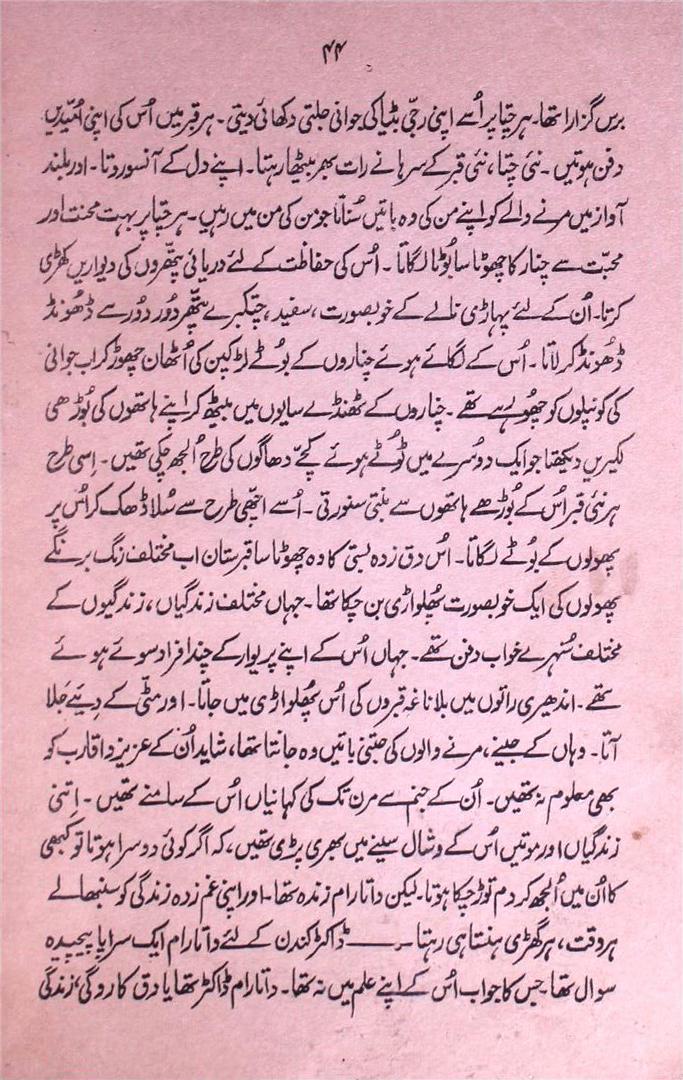 ۴۴
برس گزارا تھا۔ ہر چتا پر اُسے اپنی رجّی بٹیا کی جوانی جلتی دکھائی دیتی۔ ہر قبر میں اُس کی اپنی اُمیّدیں
دفن ہوتیں۔ نئی چتا، نئی قبر کے سرہانے رات بھر بیٹھا رہتا۔ اپنے دل کے آنسو روتا۔ اور بلند
آواز میں مرنے والے کو اپنے من کی وہ باتیں سُناتا جو من کی من میں رہیں۔ ہر چتا پر بہت محنت اور
محبّت سے چنار کا چھوٹا سا بُوٹا لگاتا۔ اُس کی حفاظت کے لئے دریائی پتھّروں کی دیواریں کھڑی
کرتا۔ اُن کے لئے پہاڑی نالے کے خوبصورت، سفید، چتکبرے پتھّر دُور دُور سے ڈھونڈ
ڈھونڈ کر لاتا۔ اُس کے لگائے ہوئے چناروں کے بُوٹے لڑکپن کی اُٹھان چھوڑ کر اب جوانی
کی کونپلوں کو چھُو رہے تھے۔ چناروں کے ٹھنڈے سایوں میں بیٹھ کر اپنے ہاتھوں کی بُوڑھی
لکیریں دیکھتا جو ایک دوسُرے میں ٹُوٹے ہوئے کچّے دھاگوں کی طرح اُلجھ چکی تھیں۔ اِسی طرح
ہر نئی قبر اُس کے بُوڑھے ہاتھوں سے بنتی سنورتی۔ اُسے اچھّی طرح سے سُلا ڈھک کر اُس پر
پھولوں کے بُوٹے لگاتا۔ اُس دق زدہ بستی کا وہ چھوٹا سا قبرستان اب مختلف رنگ برنگے
پھولوں کی ایک خوبصورت پھُلواڑی بن چکا تھا۔ جہاں مختلف زندگیاں، زندگیوں کے
مختلف سُنہرے خواب دفن تھے۔ جہاں اُس کے اپنے پریوار کے چند افراد سوئے ہوئے
تھے۔ اندھیری راتوں میں بلاناغہ قبروں کی اُس پھُلواڑی میں جاتا۔ اور مٹّی کے دِیئے جَلا
آتا۔ وہاں کے جیتے، مرنے والوں کی جتنی باتیں وہ جانتا تھا، شاید اُن کے عزیز و اقارب کو
بھی معلوم نہ تھیں۔ اُن کے جنم سے مرن تک کی کہانیاں اُس کے سامنے تھیں۔ اِتنی
زندگیاں اور موتیں اُس کے وشال سینے میں بھری پڑی تھیں، کہ اگر کوئی دوسرا ہوتا تو کبھی
کا اُن میں اُلجھ کر دم توڑ چکا ہوتا۔ لیکن داتا رام زندہ تھا۔ اور اپنی غم زدہ زندگی کو سنبھالے
ہر وقت، ہر گھڑی ہنستا ہی رہتا۔ ——— ڈاکٹر کندن کے لئے داتا رام ایک سراپا پیچیدہ
سوال تھا جس کا جواب اُس کے اپنے علم میں نہ تھا۔ داتا رام ڈاکٹر تھا یا دق کا روگی، زندگی